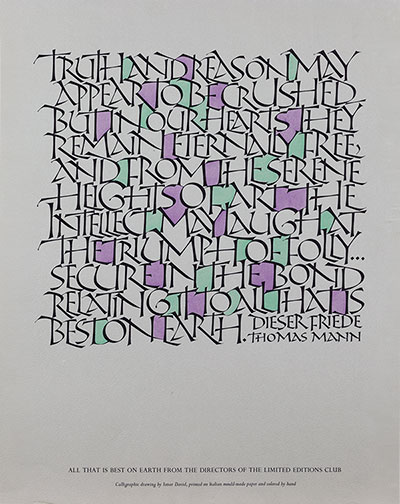 TRUTH AND REASON MAY
APPEAR TO BE CRUSHED.
BUT IN OUR HEARTS THEY
REMAIN ETERNALLY FREE,
AND FROM THE SERENE
HEIGHTS OF ART THE
INTELLECT MAY LAUGH AT
THE TRIUMPH OF FOLLY...
SECURE IN THE BOND
RELATING IT TO ALL THAT IS
BEST ON EARTH. DIESER FRIEDE
THOMAS MANN
ALL THAT IS BEST ON EARTH FROM THE DIRECTORS OF THE LIMITED EDITIONS CLUB
Calligraphic drawing by Ismar David, printed on Italian mould-made paper and colored by hand